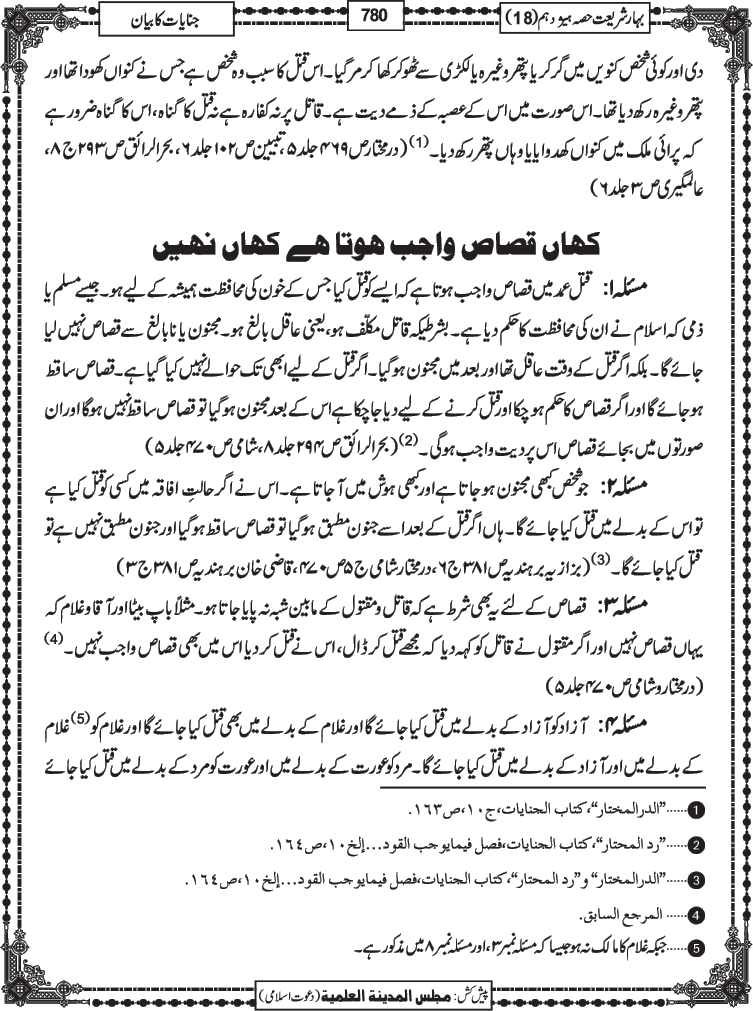 بہارِ شریعت حصہ ہیژ دہم (18)
780
جنایات کا بیان
دی اور کوئی شخص کنویں میں گر کر یا پتھر وغیرہ یا لکڑی سے ٹھوکر کھا کر مر گیا۔ اس قتل کا سبب وہ شخص ہے جس نے کنواں کھودا تھا اور
پتھر وغیرہ رکھ دیا تھا۔ اس صورت میں اس کے عصبہ کے ذمے دیت ہے۔ قاتل پر نہ کفارہ ہے نہ قتل کا گناہ، اس کا گناہ ضرور ہے
کہ پرائی ملک میں کنواں کھدوایا یا وہاں پتھر رکھ دیا۔(1) (درمختار ص ۴۶۹ جلد ۵، تبیین ص ۱۰۲ جلد ۶، بحرالرائق ص ۲۹۳ ج ۸،
عالمگیری ص ۳ جلد ۶)
کہاں قصاص واجب ہوتا ہے کہاں نہیں
مسئلہ ۱: قتل عمد میں قصاص واجب ہوتا ہے کہ ایسے کو قتل کیا جس کے خون کی محافظت ہمیشہ کے لیے ہو۔ جیسے مسلم یا
ذمی کہ اسلام نے ان کی محافظت کا حکم دیا ہے۔ بشرطیکہ قاتل مکلّف ہو، یعنی عاقل بالغ ہو۔ مجنون یا نابالغ سے قصاص نہیں لیا
جائے گا۔ بلکہ اگر قتل کے وقت عاقل تھا اور بعد میں مجنون ہو گیا۔ اگر قتل کے لیے ابھی تک حوالے نہیں کیا گیا ہے۔ قصاص ساقط
ہو جائے گا اور اگر قصاص کا حکم ہو چکا اور قتل کرنے کے لیے دیا جا چکا ہے اس کے بعد مجنون ہو گیا تو قصاص ساقط نہیں ہوگا اور ان
صورتوں میں بجائے قصاص اس پر دیت واجب ہوگی۔(2) (بحرالرائق ص ۲۹۴ جلد ۸، شامی ص ۴۷۰ جلد ۵)
مسئلہ ۲: جو شخص کبھی مجنون ہو جاتا ہے اور کبھی ہوش میں آ جاتا ہے۔ اس نے اگر حالتِ افاقہ میں کسی کو قتل کیا ہے
تو اس کے بدلے میں قتل کیا جائے گا۔ ہاں اگر قتل کے بعد اسے جنون مطبق ہو گیا تو قصاص ساقط ہو گیا اور جنون مطبق نہیں ہے تو
قتل کیا جائے گا۔(3) (بزازیہ بر ہندیہ ص ۳۸۱ ج ۶، درمختار شامی ج ۵ ص ۴۷۰، قاضی خان بر ہندیہ ص ۳۸۱ ج ۳)
مسئلہ ۳: قصاص کے لئے یہ بھی شرط ہے کہ قاتل و مقتول کے مابین شبہ نہ پایا جاتا ہو۔ مثلاً باپ بیٹا اور آقا و غلام کہ
یہاں قصاص نہیں اور اگر مقتول نے قاتل کو کہہ دیا کہ مجھے قتل کر ڈال، اس نے قتل کر دیا اس میں بھی قصاص واجب نہیں۔(4)
(درمختار و شامی ص ۴۷۰ جلد ۵)
مسئلہ ۴: آزاد کو آزاد کے بدلے میں قتل کیا جائے گا اور غلام کے بدلے میں بھی قتل کیا جائے گا اور غلام کو(5) غلام
کے بدلے میں اور آزاد کے بدلے میں قتل کیا جائے گا۔ مرد کو عورت کے بدلے میں اور عورت کو مرد کے بدلے میں قتل کیا جائے
1......"الدرالمختار"، کتاب الجنایات، ج ۱۰، ص ۱۶۳.
2......"رد المحتار"، کتاب الجنایات، فصل فیما یوجب القود... إلخ، ج ۱۰، ص ۱۶۴.
3......"الدرالمختار" و"رد المحتار"، کتاب الجنایات، فصل فیما یوجب القود... إلخ، ج ۱۰، ص ۱۶۴.
4...... المرجع السابق.
5......جبکہ غلام کا مالک نہ ہو جیسا کہ مسئلہ نمبر ۳، اور مسئلہ نمبر ۸ میں مذکور ہے۔
پیش کش: مجلس المدینة العلمیة (دعوتِ اسلامی)